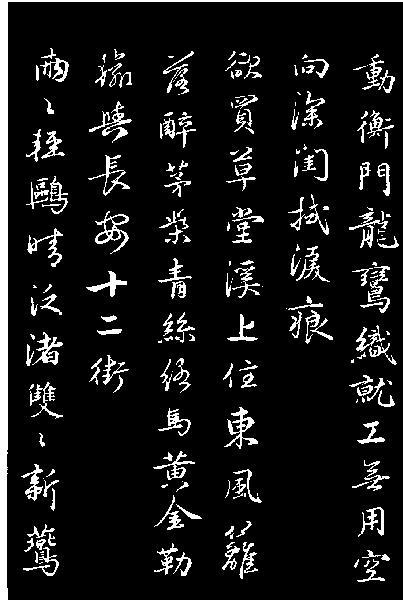 動衡門龍鸞織就工無用空
向深閨拭淚痕
欲買草堂溪上住東風籬
落醉茅柴青絲絡馬黃金勒
輸與長安十二街
兩〻輕鷗晴泛渚雙〻新鷰